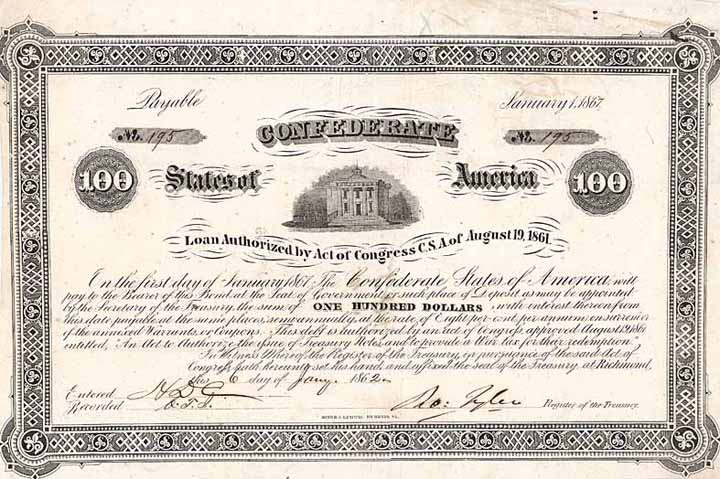 Payable January 1, 1867.
No. 195 CONFEDERATE No. 195
100 States of America 100
Loan Authorized by Act of Congress C.S.A. of August 19, 1861.
On the first day of January 1867, The Confederate States of America, will
pay to the Bearer of this Bond, at the Seat of Government, or such place of Deposit as may be appointed
by the Secretary of the Treasury, the sum of ONE HUNDRED DOLLARS with interest thereon from
this date payable at the same places, semi-annually, at the rate of Eight per cent per annum, on surrender
of the annexed Warrants, or Coupons. This debt is authorized by an act of Congress, approved August 19, 1861
entitled, "An Act to Authorize the issue of Treasury Notes, and to provide a War tax for their redemption."
In Witness Whereof, the Register of the Treasury, in pursuance of the said Act of
Congress, hath hereunto set his hand, and affixed the seal of the Treasury, at Richmond,
this 6 day of Jany. 1862
Entered
Recorded Ro: Tyler Register of the Treasury.